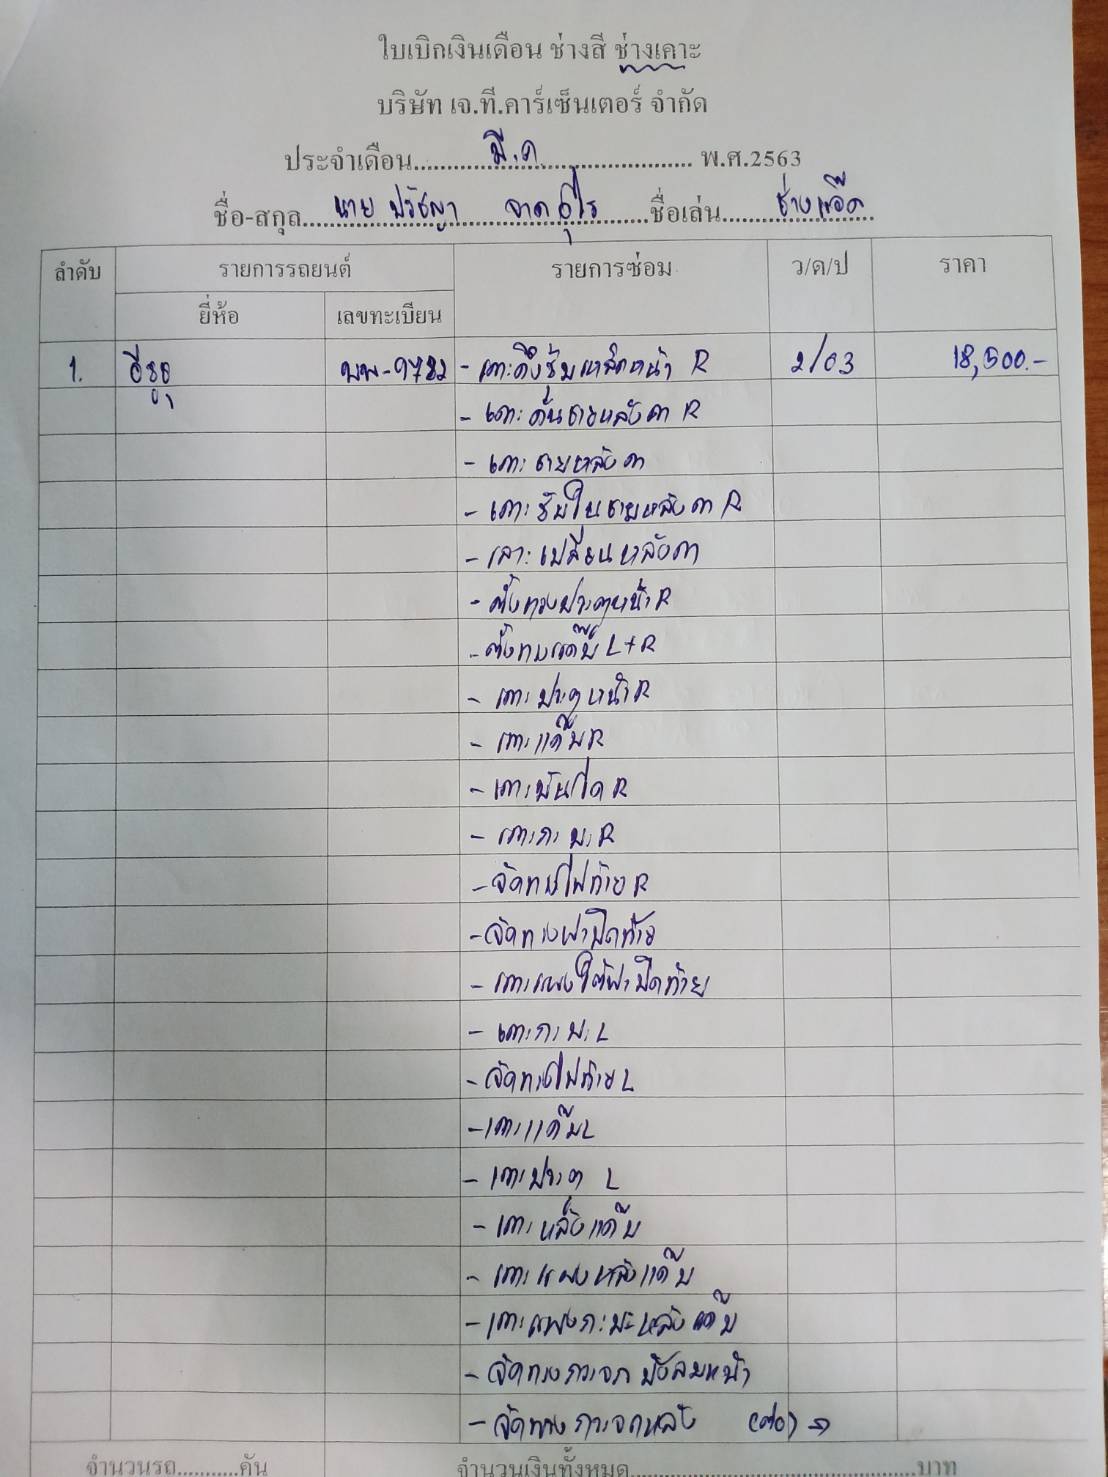 ใบเบิกเงินเดือน ช่างสี ช่างเคาะ
บริษัท เจ.ที.คาร์เซ็นเตอร์ จำกัด
ประจำเดือน.....มี.ค.....พ.ศ.2563
ชื่อ-สกุล.....นาย ปรัชญา.....ชื่อเล่น.....ช่างแอ๊ด.....
ลำดับ รายการรถยนต์ รายการซ่อม ว/ด/ป ราคา
ยี่ห้อ เลขทะเบียน
1. อีซูซุ - เคาะดึงซุ้มเหล็กหน้า R 2/03 18,500.-
- เคาะคิ้นชายหลังคา R
- เคาะชายหลังคา
- เคาะซับในชายหลังคา R
- เลาะเปลี่ยนหลังคา
- ตั้งทรงประตูหน้า R
- ตั้งทรงแค๊บ L+R
- เคาะประตูหน้า R
- เคาะแค๊บ R
- เคาะบันได R
- เคาะกะบะ R
- จัดทรงไฟท้าย R
- จัดทรงฝาปิดท้าย
- เคาะแผงใต้ฝาปิดท้าย
- เคาะกะบะ L
- จัดทรงไฟท้าย L
- เคาะแค๊บ L
- เคาะประตู L
- เคาะหลังแค๊บ
- เคาะแผงหลังแค๊บ
- เคาะแผงกะบะหลังแค๊บ
- จัดทรงกระจกบังลมหน้า
- จัดทรงกระจกหลัง (ต่อ)
จำนวนรถ...........คัน จำนวนเงินทั้งหมด..........บาท